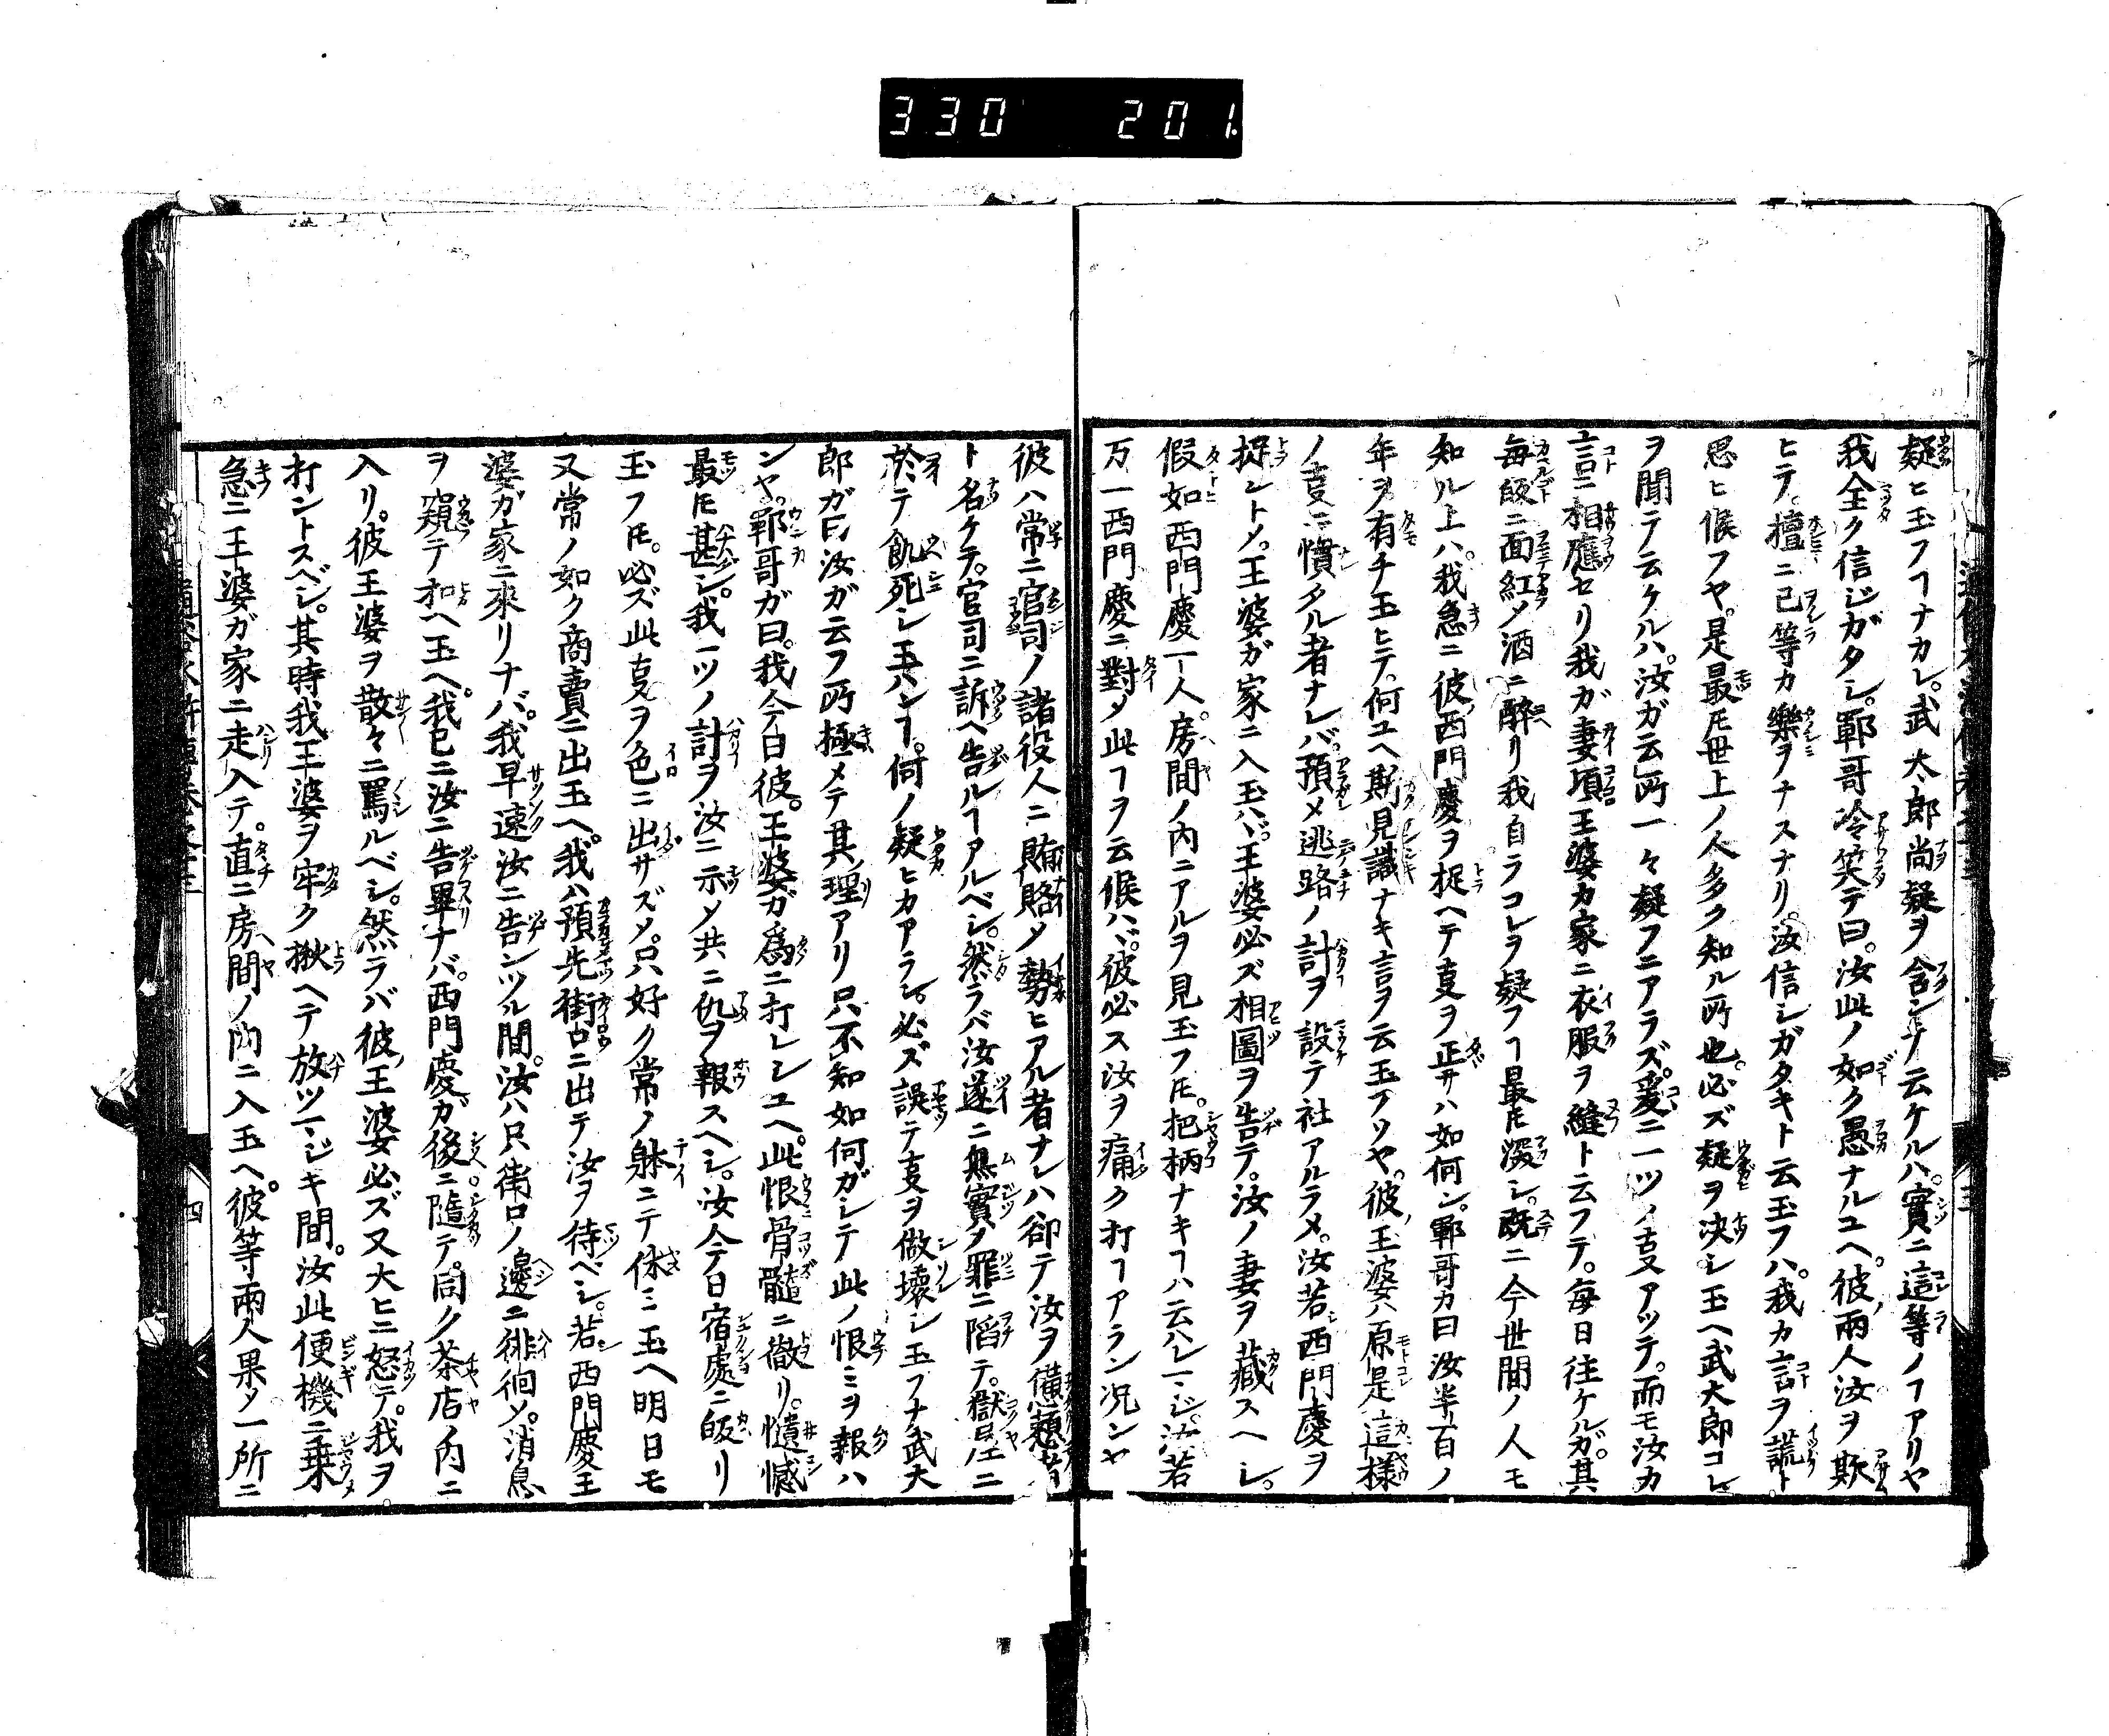 330 201.
疑ヒ玉フヿナカレ。武大郎尚疑ヲ含ンテ云ケルハ。實ニ這等ノヿアリヤ
我全ク信ジガタシ。鄆哥冷笑テ曰。汝此ノ如ク愚ナルユヘ。彼兩人汝ヲ欺
ヒテ。擅ニ己等カ樂ヲナスナリ。汝信シガタキト云玉フハ。我カ言ヲ謊ト
思ヒ候フヤ。是最モ世上ノ人多ク知ル所也。必ズ疑ヲ決シ玉ヘ武大郎コレ
ヲ聞テ云ケルハ。汝ガ云所一々疑フニアラズ。爰ニ一ツノ叓アツテ。而モ汝カ
言ニ相應セリ我ガ妻頃王婆カ家ニ衣服ヲ縫ト云フテ。毎日往ケルガ。其
毎皈ニ面紅メ酒ニ醉リ我自ラコレヲ疑フヿ最モ深シ。既ニ今世間ノ人モ
知ル上ハ。我急ニ彼西門慶ヲ捉ヘテ叓ヲ正サハ如何ン。鄆哥カ曰汝半百ノ
年ヲ有チ玉ヒテ。何ユヘ斯見識ナキ言ヲ云玉フソヤ。彼王婆ハ原是這樣
ノ叓ニ慣タル者ナレバ。預メ逃路ノ計ヲ設テ社アルラメ。汝若西門慶ヲ
捉ントメ。王婆ガ家ニ入玉ハヾ。王婆必ズ相圖ヲ告テ。汝ノ妻ヲ藏スヘシ。
假如西門慶一人房間ノ内ニアルヲ見玉フモ。把柄ナキヿハ云ハレマジ。汝若
万一西門慶ニ對メ此ヿヲ云候ハヾ。彼必ス汝ヲ痛ク打ヿアラン况ンヤ
彼ハ常ニ官司ノ諸役人ニ賄賂メ勢ヒアル者ナレハ却テ汝ヲ
ト名ケテ。官司ニ訴ヘ告ルヿアルベシ。然ラバ汝遂ニ無實ノ罪ニ陷テ。獄屋ニ
於テ飢死シ玉ハンヿ。何ノ疑ヒカアラン。必ズ誤テ叓ヲ做壞シ玉フナ武大
郎ガ曰汝ガ云フ所極メテ其理アリ只不知如何ガシテ此ノ恨ミヲ報ハ
ンヤ。鄆哥ガ曰。我今日彼王婆ガ爲ニ打レシユヘ。此恨骨髓ニ徹リ。憾
最モ甚シ。我一ツノ計ヲ汝ニ示メ共ニ仇ヲ報スヘシ。汝今日宿處ニ皈リ
玉フモ。必ズ此叓ヲ色ニ出サズメ。只好ク常ノ躰ニテ休ミ玉ヘ明日モ
又常ノ如ク商賣ニ出玉ヘ。我ハ預先街口ニ出テ汝ヲ待ベシ。若西門慶王
婆ガ家ニ來リナバ。我早速汝ニ告ンツル間。汝ハ只街口ノ邊ニ徘徊メ。消息
ヲ窺テ扣ヘ玉ヘ。我已ニ汝ニ告畢ナバ。西門慶ガ後ニ隨テ。同ク茶店ノ内ニ
入リ。彼王婆ヲ散々ニ罵ルベシ。然ラバ彼王婆必ズ又大ヒニ怒テ。我ヲ
打ントスベシ。其時我王婆ヲ牢ク揪ヘテ放ツマジキ間。汝此便機ニ乗
急ニ王婆ガ家ニ走入テ。直ニ房間ノ内ニ入玉ヘ。彼等兩人果メ一所ニ
三
四